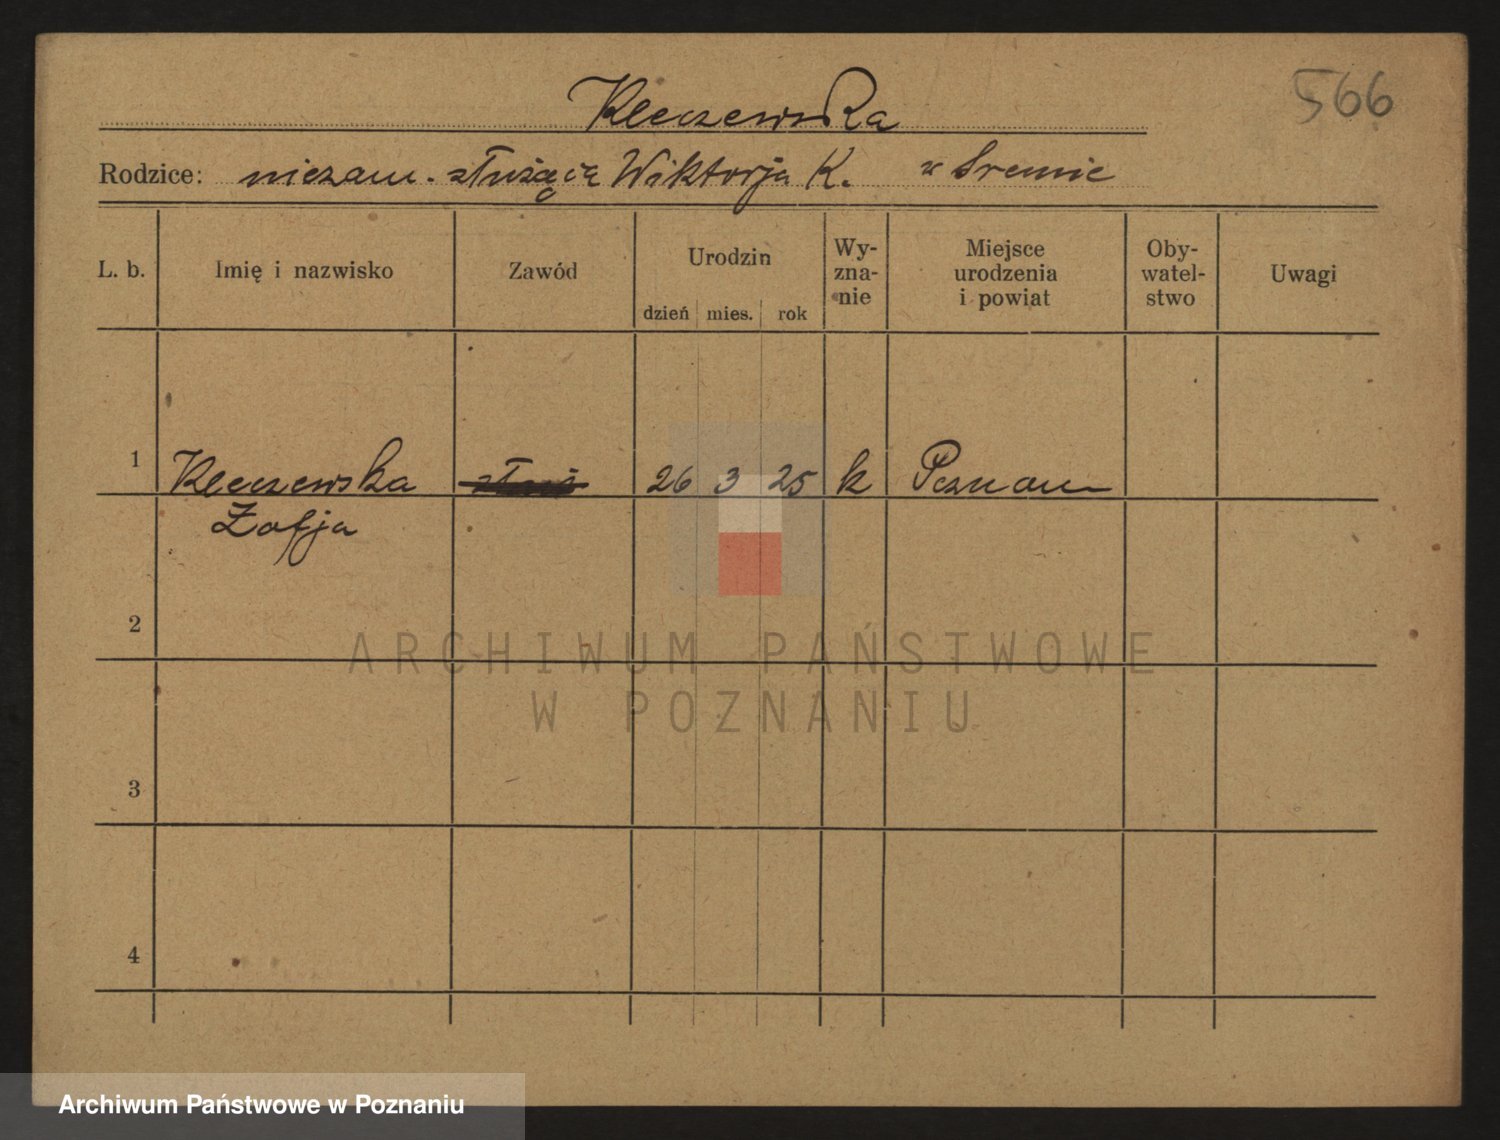 Kleczewska
566
Rodzice: niezam. służąca Wiktorja K. w Śremie
L. b. Imię i nazwisko Zawód Urodzin dzień mies. rok Wy-zna-nie Miejsce urodzenia i powiat Oby-watel-stwo Uwagi
1 Kleczewska służ 26 3 25 k Poznań
Zofja
2
3
4
ARCHIWUM PAŃSTWOWE
W POZNANIU
Archiwum Państwowe w Poznaniu